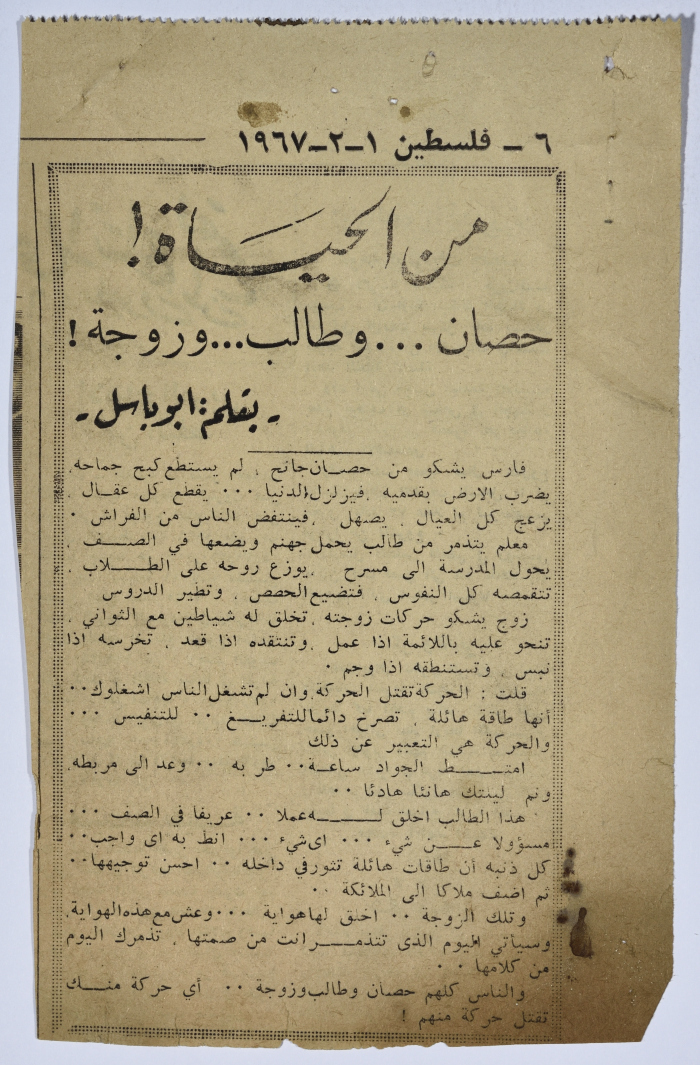 ٦ ـ فلسطين ١ـ٢ـ١٩٦٧
من الحياة !
حصان ... وطالب...وزوجة !
ـ بقلم : ابو باسل ـ
فارس يشكو من حصان جانح ، لم يستطع كبح جماحه،
يضرب الارض بقدميه ،فيزلزل الدنيا ٠٠٠ يقطع كل عقال ،
يزعج كل العيال ، يصهل ،فينتفض الناس من الفراش ٠
معلم يتذمر من طالب يحمل جهنم ويضعها في الصف ،
يحول المدرسة الى مسرح ،يوزع روحه على الطلاب ،
تتقمصه كل النفوس ، فتضيع الحصص ، وتطير الدروس
زوج يشكو حركات زوجته ،تخلق له شياطين مع الثواني ،
تنحو عليه باللائمة اذا عمل ،وتنتقده اذا قعد ، تخرسه اذا
نبس ، وتستنطقه اذا وجم ٠
قلت : الحركة تقتل الحركة،وان لم تشغل الناس اشغلوك٠٠
أنها طاقة هائلة ، تصرخ دائما للتفريغ ٠٠ للتنفيس ٠٠٠
والحركة هي التعبير عن ذلك
امتط الجواد ساعة٠٠ طر به ٠٠ وعد الى مربطه،
ونم ليلتك هانئا هادئا ٠٠
هذا الطالب اخلق له عملا ٠٠ عريفا في الصف ٠٠٠
مسؤولا عن شيء ٠٠٠ اى شيء ٠٠٠ انط به اى واجب٠٠
كل ذنبه أن طاقات هائلة تثور في داخله ٠٠ احسن توجيهها٠٠
ثم اضف ملاكا الى الملائكة ٠٠
وتلك الزوجة ٠٠ اخلق لها هواية ٠٠٠وعش مع هذه الهواية،
وسيأتي اليوم الذى تتذمر انت من صمتها ، تذمرك اليوم
من كلامها ٠٠
والناس كلهم حصان وطالب وزوجة ٠٠ أي حركة منك
تقتل حركة منهم !